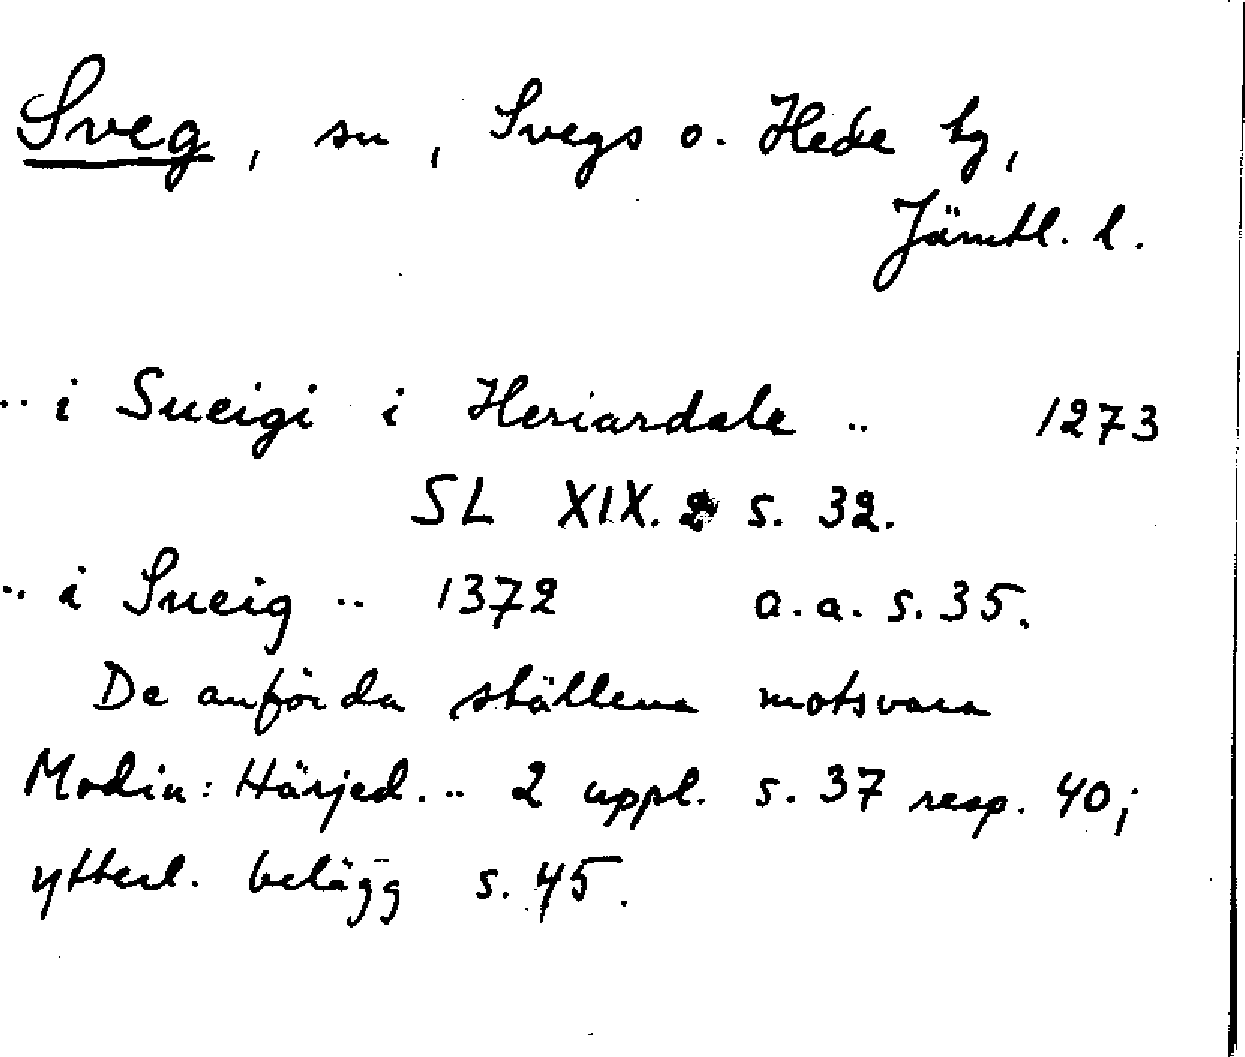 Sveg, sn, Svegs o. Hede tg,
Jämtl. l.
.. i Sueigi i Heriardale .. 1273
SL XIX. 2 s. 32.
.. i Sueig .. 1372 a. a. s. 35.
De anförda ställena motsvara
Modin: Härjed. .. 2 uppl. s. 37 resp. 40;
ytterl. belägg s. 45.